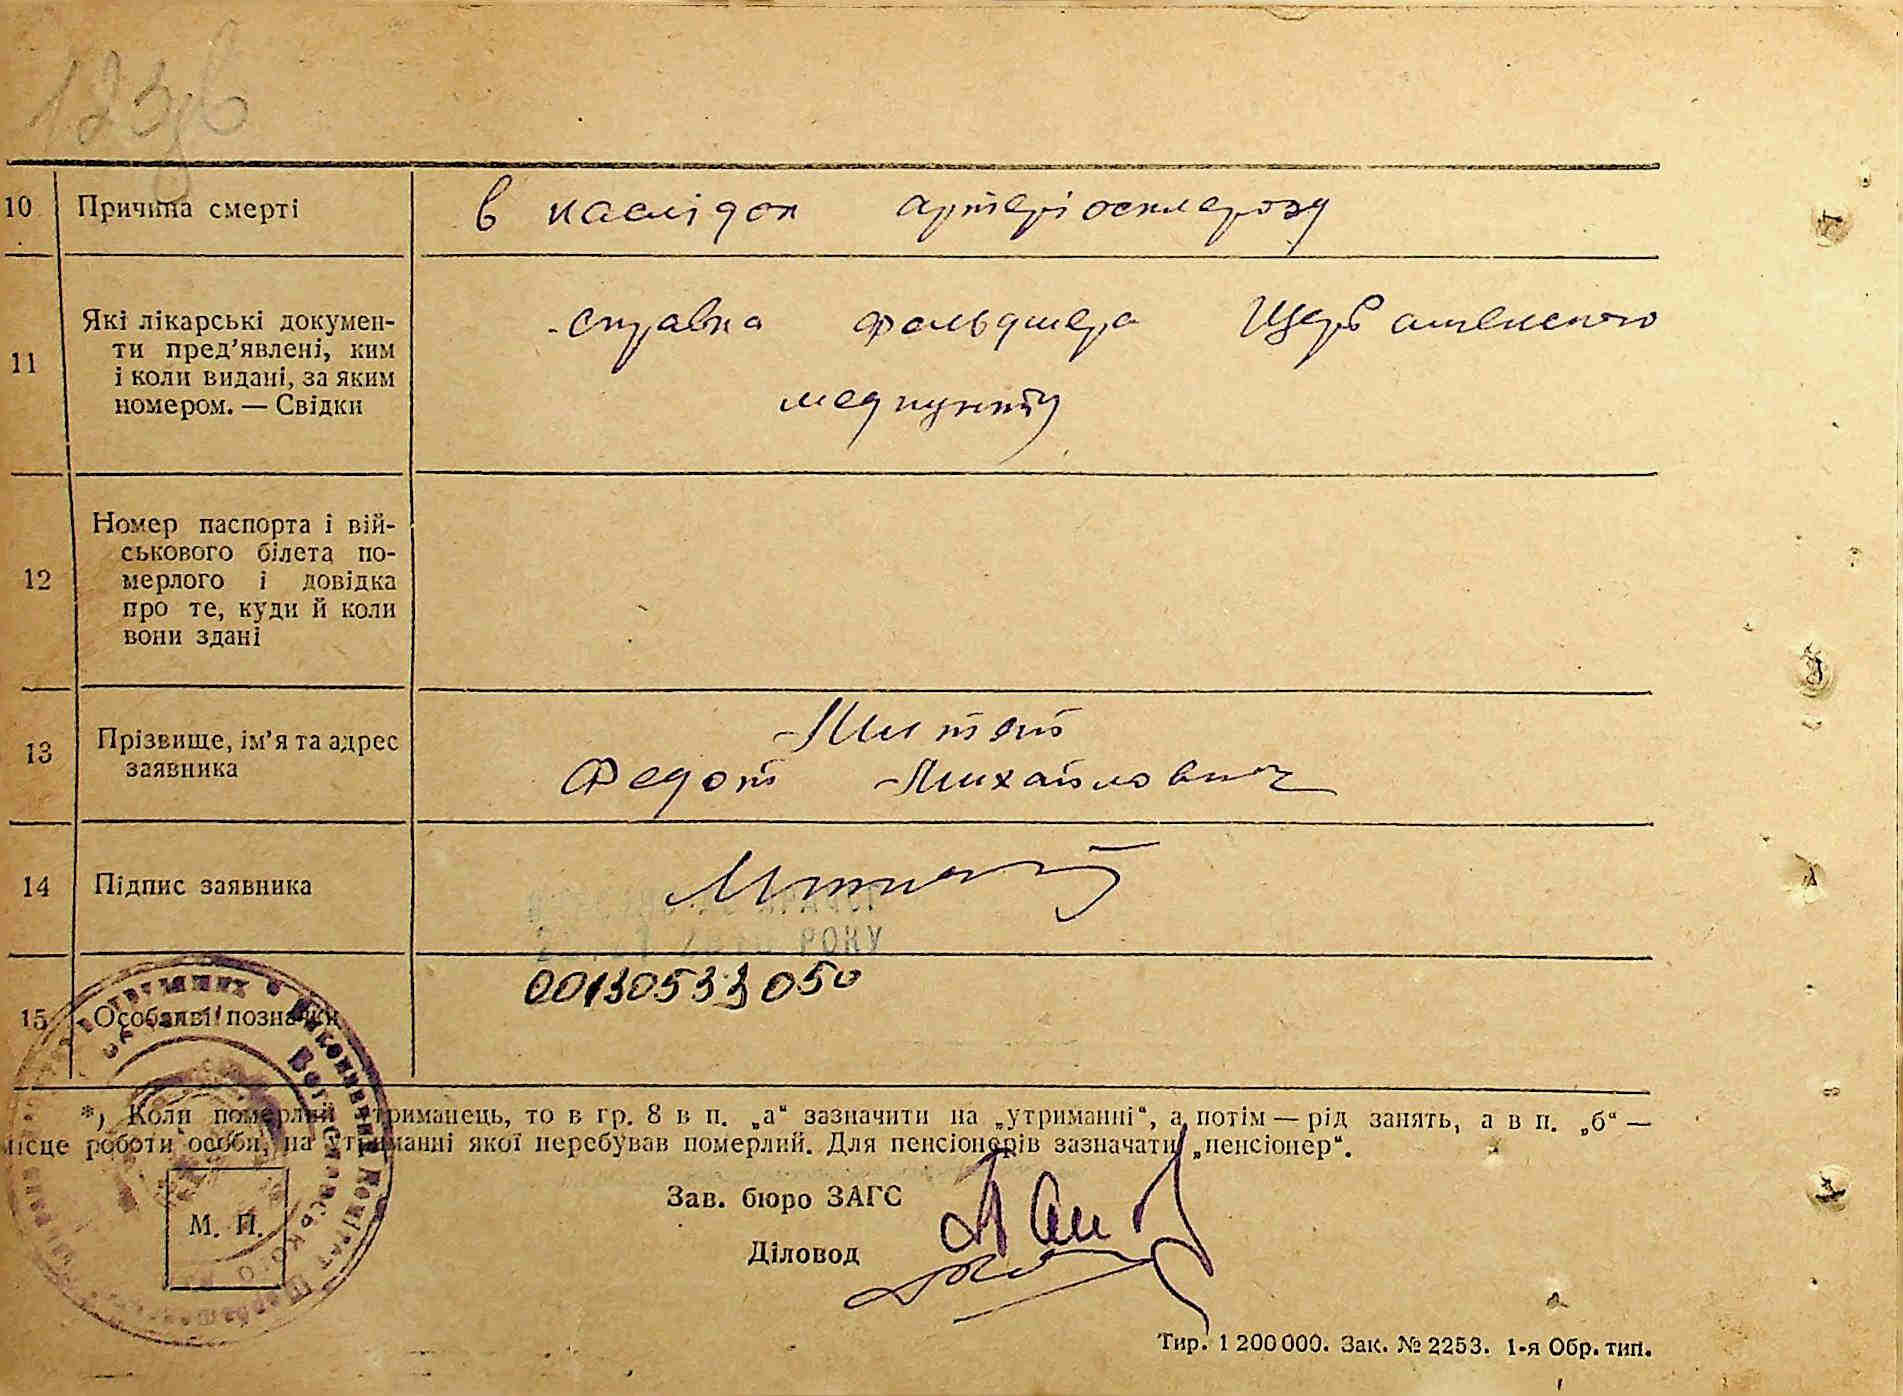 10 Причина смерті в наслідок артеріосклерозу
11 Які лікарські докумен-
ти пред'явлені, ким
і коли видані, за яким
номером. — Свідки
справка фельдшера Щербашенского
медпункту
12 Номер паспорта і вій-
ськового білета по-
мерлого і довідка
про те, куди й коли
вони здані
13 Прізвище, ім'я та адрес
заявника
Федот Михайлович
14 Підпис заявника
РОКУ
00130533050
15 Особливі позначки
*) Коли померлий утриманець, то в гр. 8 в п. „а" зазначити на „утриманні", а потім — рід занять, а в п. „б" —
місце роботи особи, на утриманні якої перебував померлий. Для пенсіонерів зазначати „пенсіонер".
М. П.
Зав. бюро ЗАГС
Діловод
Тир. 1 200 000. Зак. № 2253. 1-я Обр. тип.